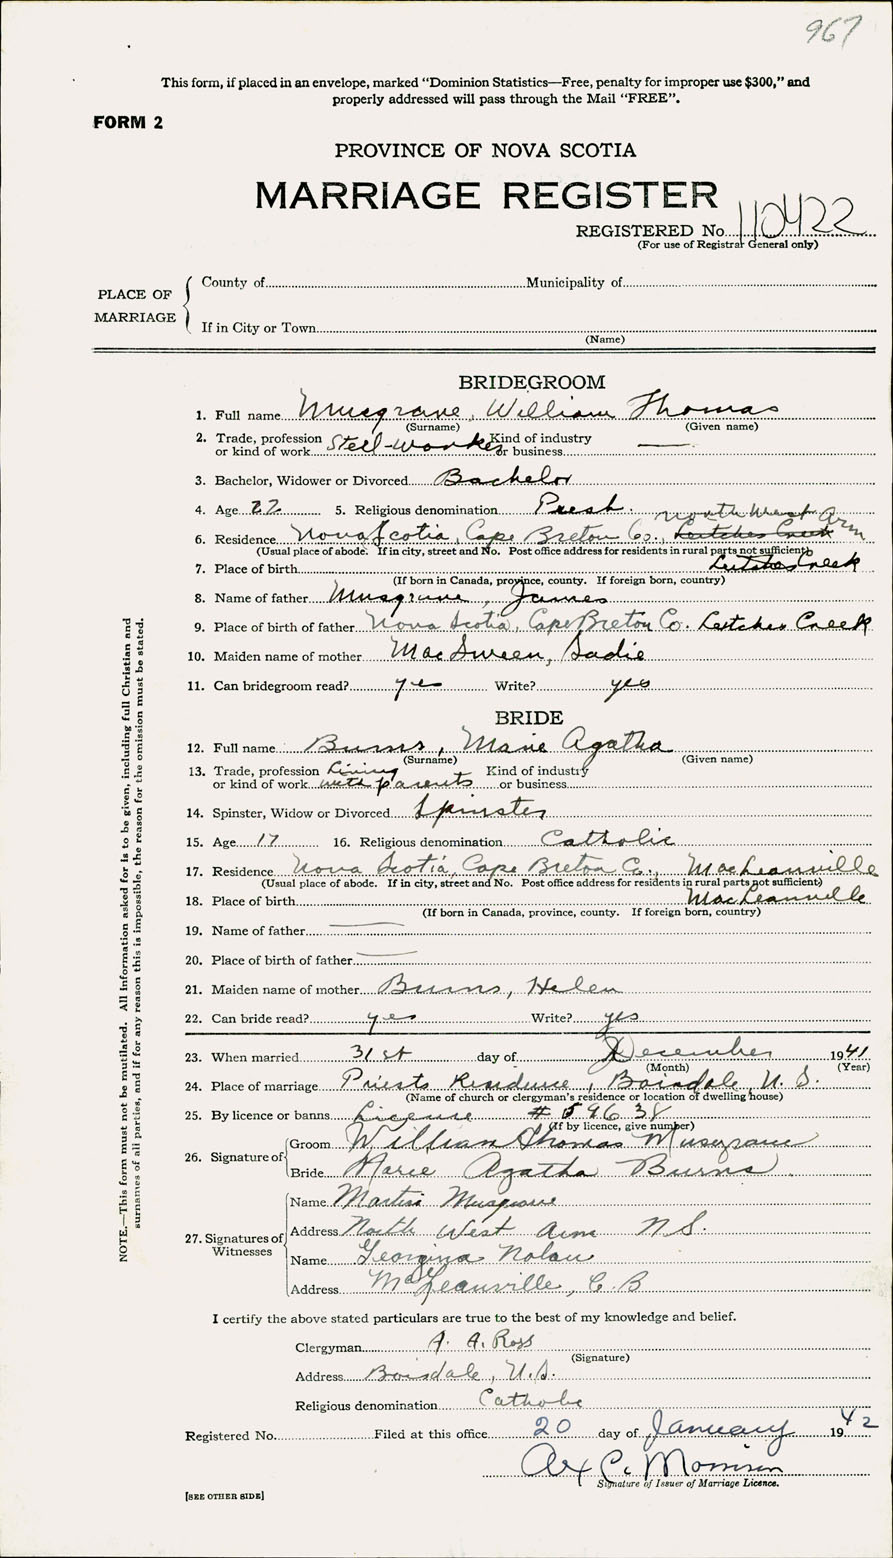 967
This form, if placed in an envelope, marked “Dominion Statistics—Free, penalty for improper use $300,” and
properly addressed will pass through the Mail “FREE”.
FORM 2
PROVINCE OF NOVA SCOTIA
MARRIAGE REGISTER
REGISTERED No. 110422
(For use of Registrar General only)
PLACE OF MARRIAGE
County of Municipality of
If in City or Town
(Name)
BRIDEGROOM
1. Full name Musgrave, William Thomas
(Surname) (Given name)
2. Trade, profession or kind of work Steel-worker Kind of industry or business —
3. Bachelor, Widower or Divorced Bachelor
4. Age 22 5. Religious denomination Presb.
North West Arm
6. Residence Nova Scotia, Cape Breton Co., Leitches Creek
(Usual place of abode. If in city, street and No. Post office address for residents in rural parts not sufficient)
7. Place of birth Leitches Creek
(If born in Canada, province, county. If foreign born, country)
8. Name of father Musgrave, James
9. Place of birth of father Nova Scotia, Cape Breton Co. Leitches Creek
10. Maiden name of mother MacSween, Sadie
11. Can bridegroom read? yes Write? yes
BRIDE
12. Full name Burns, Marie Agatha
(Surname) (Given name)
13. Trade, profession or kind of work Living with parents Kind of industry or business
14. Spinster, Widow or Divorced Spinster
15. Age 17 16. Religious denomination Catholic
17. Residence Nova Scotia, Cape Breton Co., MacLeanville
(Usual place of abode. If in city, street and No. Post office address for residents in rural parts not sufficient)
18. Place of birth MacLeanville
(If born in Canada, province, county. If foreign born, country)
19. Name of father —
20. Place of birth of father —
21. Maiden name of mother Burns, Helen
22. Can bride read? yes Write? yes
23. When married 31st day of December 1941
(Month) (Year)
24. Place of marriage Priests Residence, Boisdale, N.S.
(Name of church or clergyman's residence or location of dwelling house)
25. By licence or banns License # 59638
(If by licence, give number)
26. Signature of
Groom William Thomas Musgrave
Bride Marie Agatha Burns
27. Signatures of Witnesses
Name Martin Musgrave
Address North West Arm N.S.
Name Georgina Nolan
Address MacLeanville, C.B
I certify the above stated particulars are true to the best of my knowledge and belief.
Clergyman A. A. Ross
(Signature)
Address Boisdale, N.S.
Religious denomination Catholic
Registered No. Filed at this office 20 day of January 1942
Alex C. Morrison
Signature of Issuer of Marriage Licence.
[SEE OTHER SIDE]
NOTE.—This form must not be mutilated. All information asked for is to be given, including full Christian and
surnames of all parties, and if for any reason this is impossible, the reason for the omission must be stated.